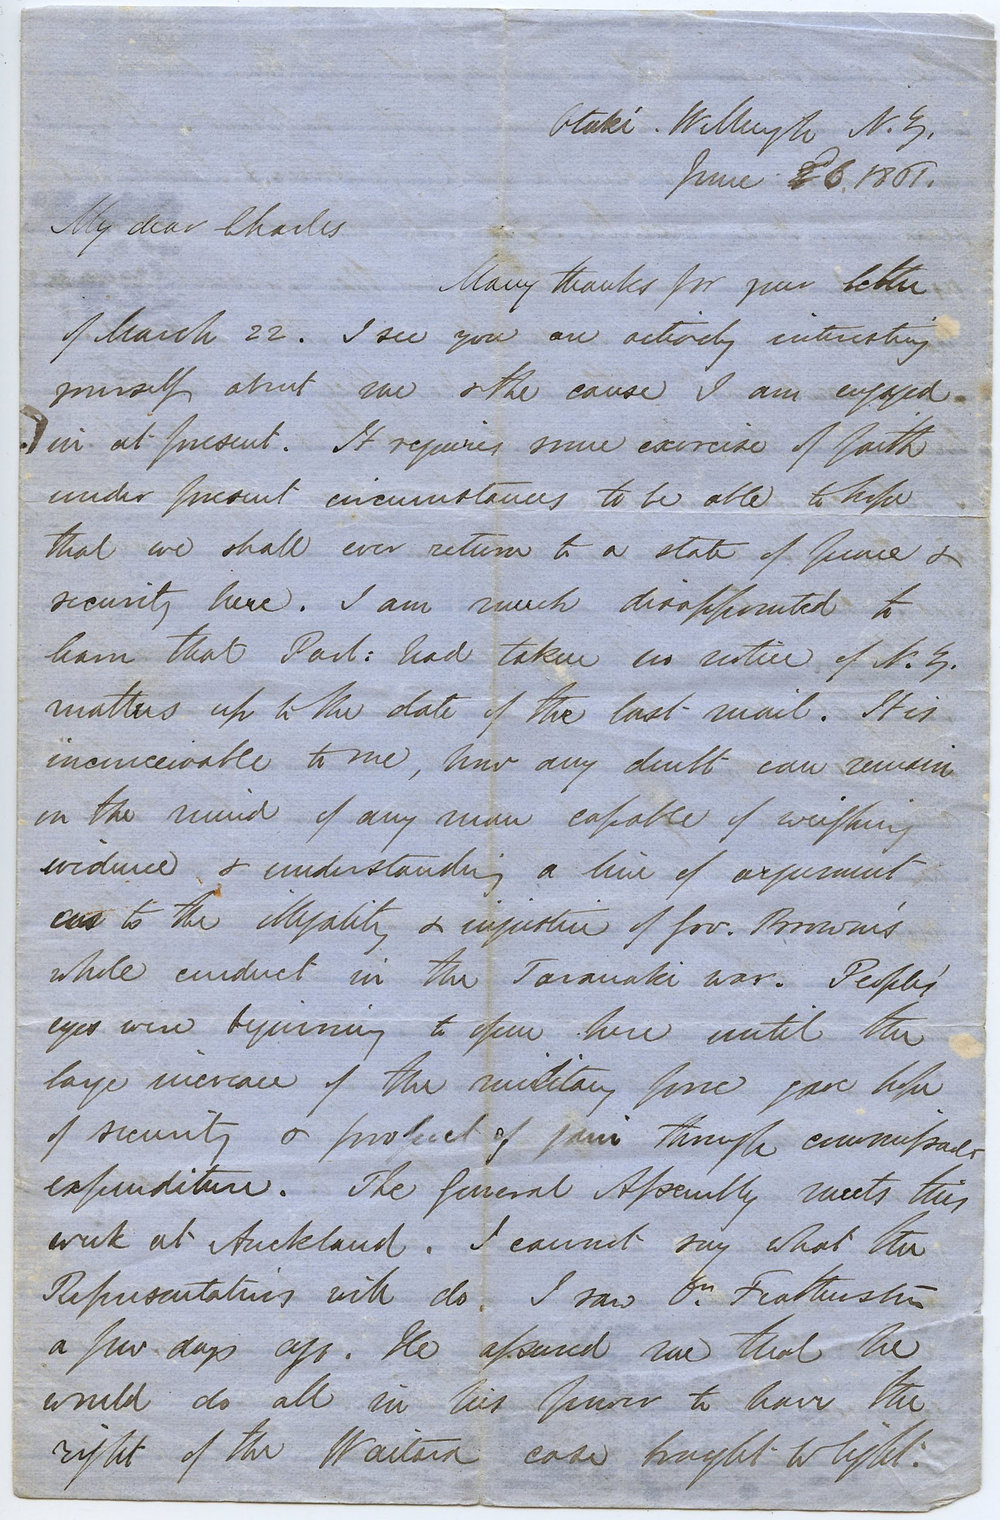 Otaki. Wellingtn N.Z.
June 26. 1861.
My dear Charles
Many thanks for your letter
of March 22. I see you are actively interesting
yourself about me & the cause I am engaged
in at present. It requires some exercise of faith
under present circumstances to be able to hope
that we shall ever return to a state of peace &
security here. I am much disappointed to
learn that Parl: had taken no notice of N.Z.
matters up to the date of the last mail. It is
inconceivable to me, how any doubt can remain
in the mind of any man capable of weighing
evidence & understanding a line of argument
as to the illegality & injustice of Gov. Browne's
whole conduct in the Taranaki war. People's
eyes were beginning to open here until the
large increase of the military force gave hope
of security & prospect of gain through commissariat
expenditure. The General Assembly meets this
week at Auckland. I cannot say what the
Representatives will do. I saw Dr. Featherston
a few days ago. He assured me that he
would do all in his power to have the
right of the Waitara case brought to light: